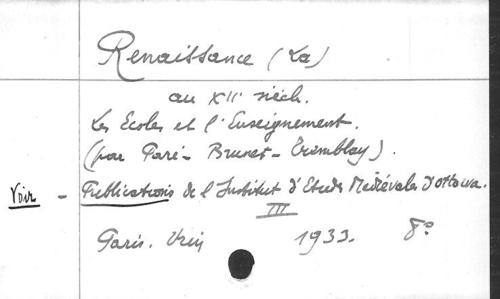 Renaissance (La)
au XIIe siècle.
Les Ecoles et l'Enseignement.
(par Paré - Brunet - Tremblay).
Voir - Publications de l'Institut d'Etudes Médiévales d'Ottawa.
III
Paris. Vrin 1933. 8°